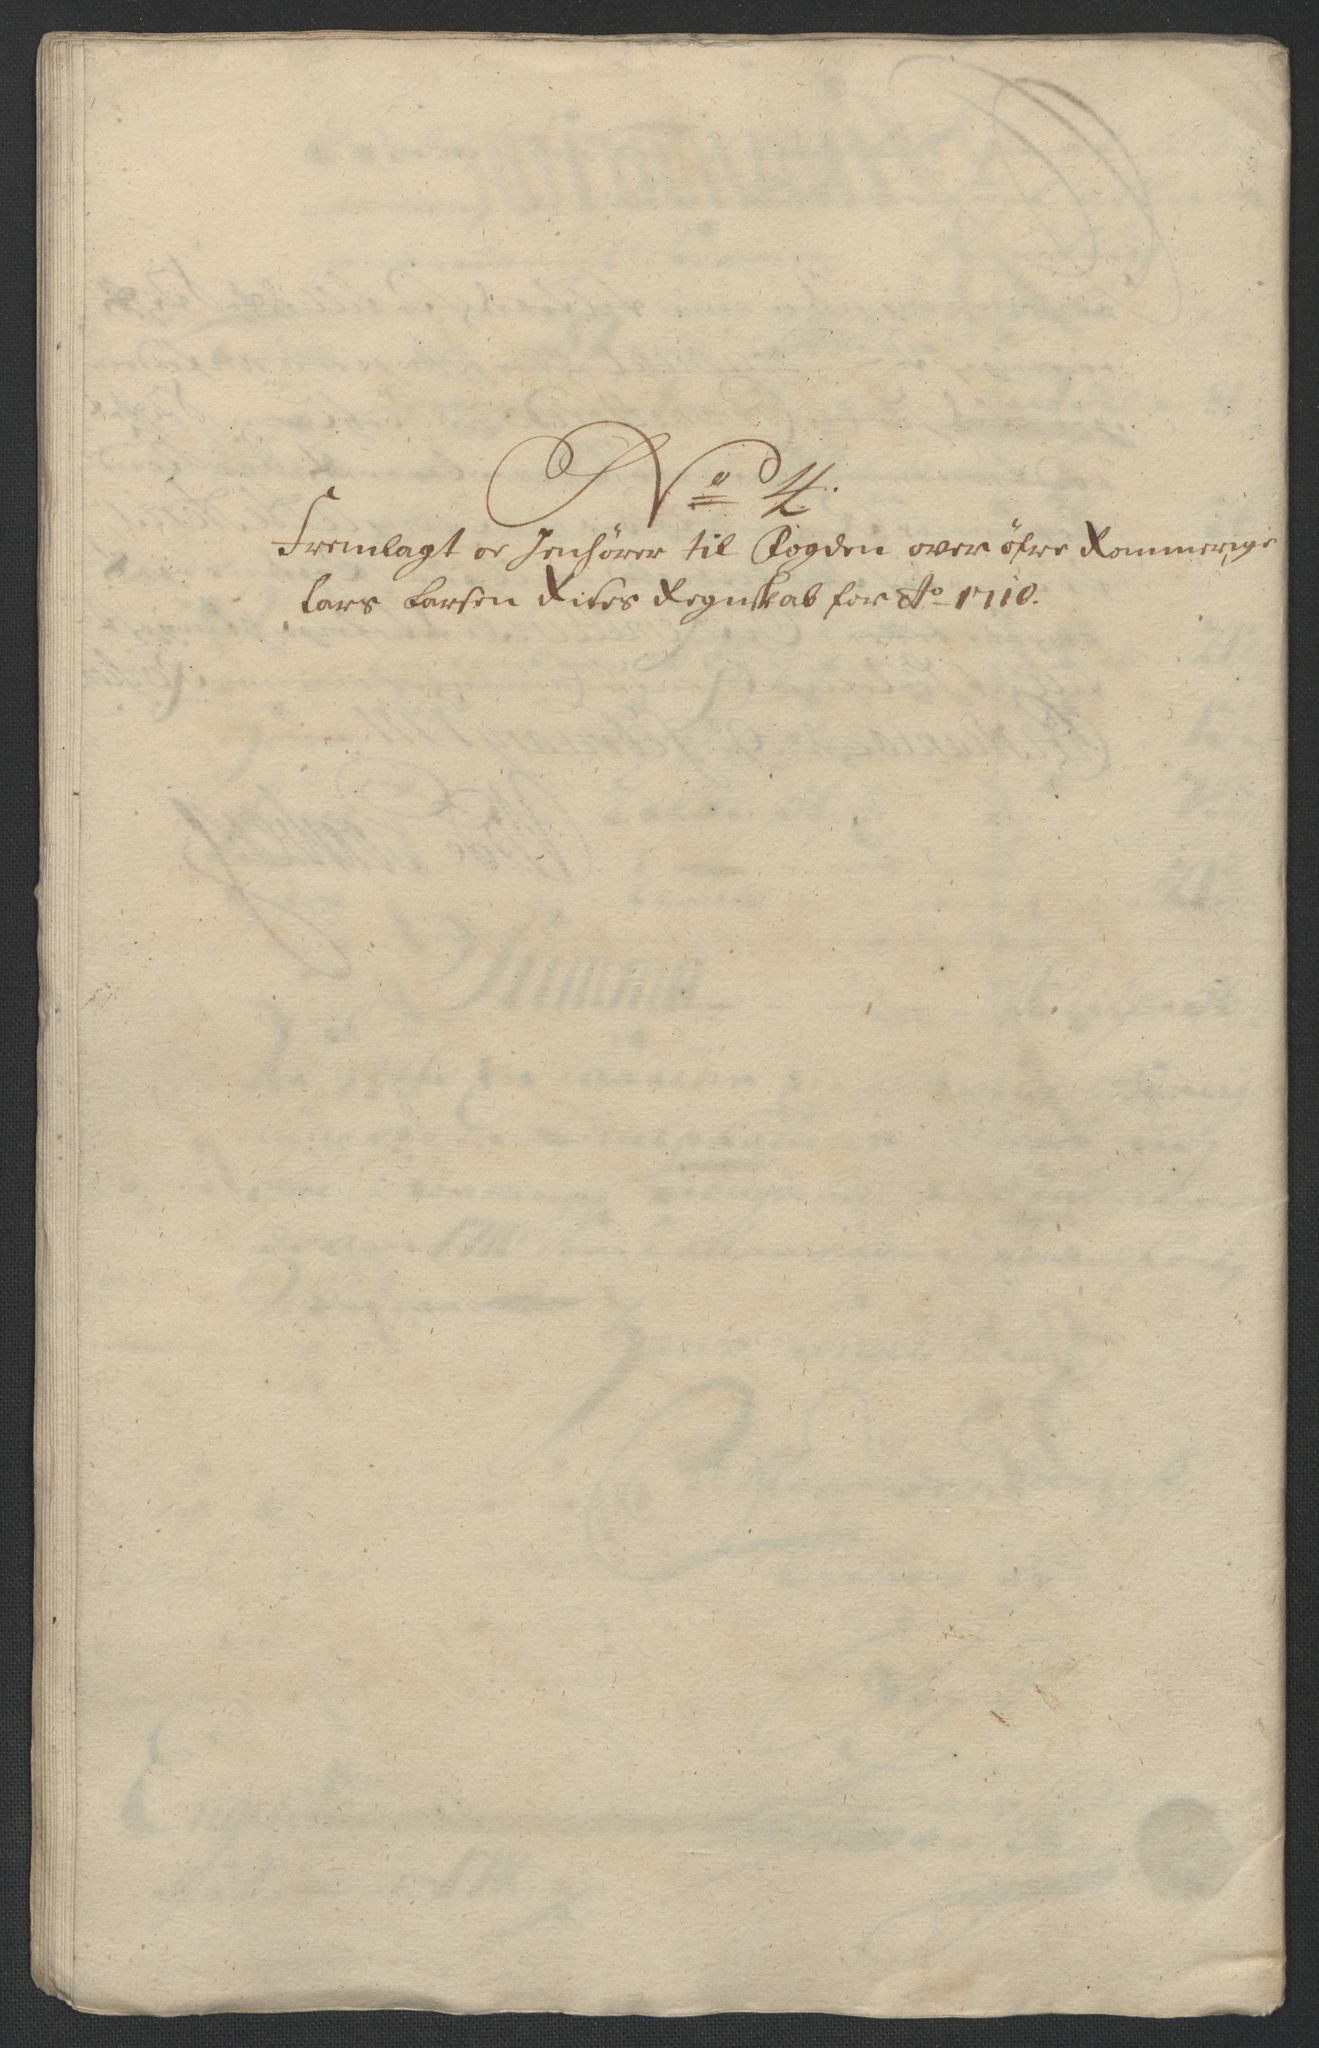 No 4.
Fremlagt oc Jenhörer til Fogden over öfre Rommerige
Lars Larsen Rises Regnskab for Ao 1710.